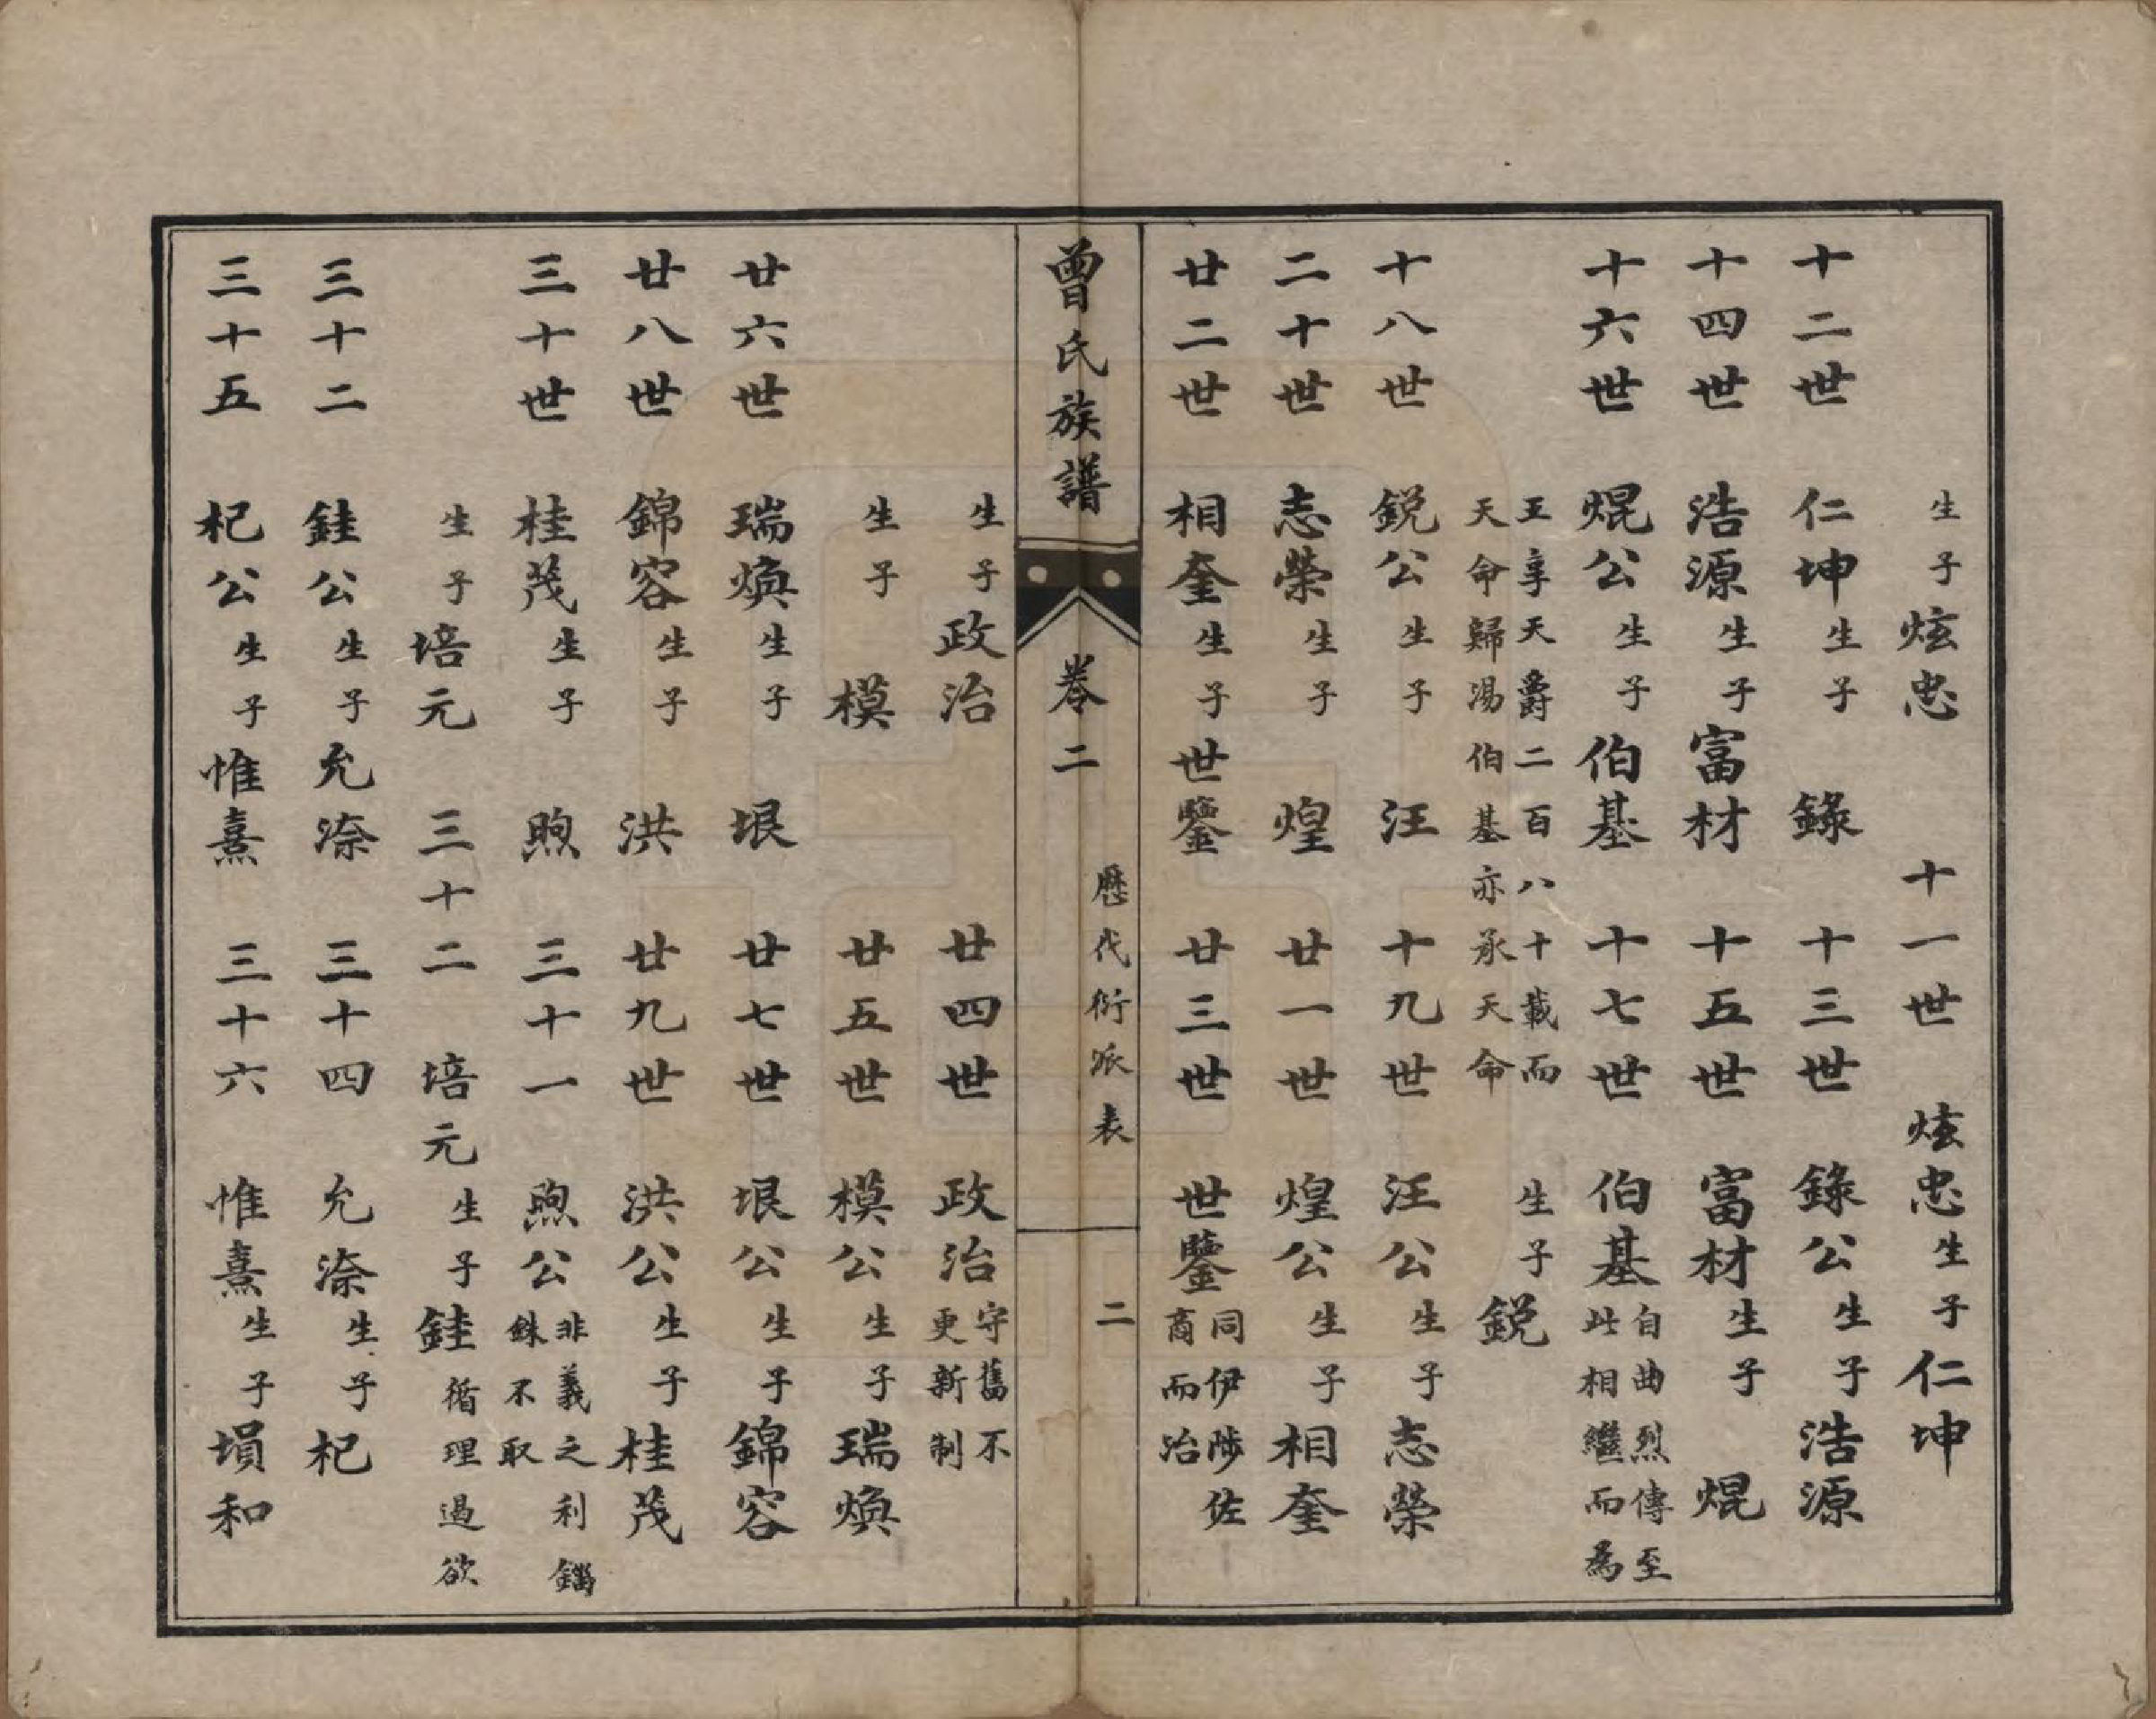 生子炫忠　十一世　炫忠生子仁坤
十二世　仁坤生子　錄　十三世　錄公生子浩源
十四世　浩源生子富材　十五世　富材生子　焜
十六世　焜公生子伯基　十七世　伯基自曲烈傳至此相繼而為
王享天爵二百八十載而天命歸湯伯基亦承天命　生子　銳
十八世　銳公生子　汪　十九世　汪公生子志榮
二十世　志榮生子　煌　廿一世　煌公生子相奎
廿二世　相奎生子世鑒　廿三世　世鑒同伊陟佐商而治
曾氏族譜　卷二　歷代衍派表　二
生子政治　廿四世　政治守舊不更新制
生子　模　廿五世　模公生子瑞煥
廿六世　瑞煥生子　垠　廿七世　垠公生子錦容
廿八世　錦容生子　洪　廿九世　洪公生子桂茂
三十世　桂茂生子　煦　三十一　煦公非義之利錙銖不取
生子培元　三十二　培元生子銈循理遏欲
三十二　銈公生子允溙　三十四　允溙生子杞
三十五　杞公生子惟熹　三十六　惟熹生子塤和